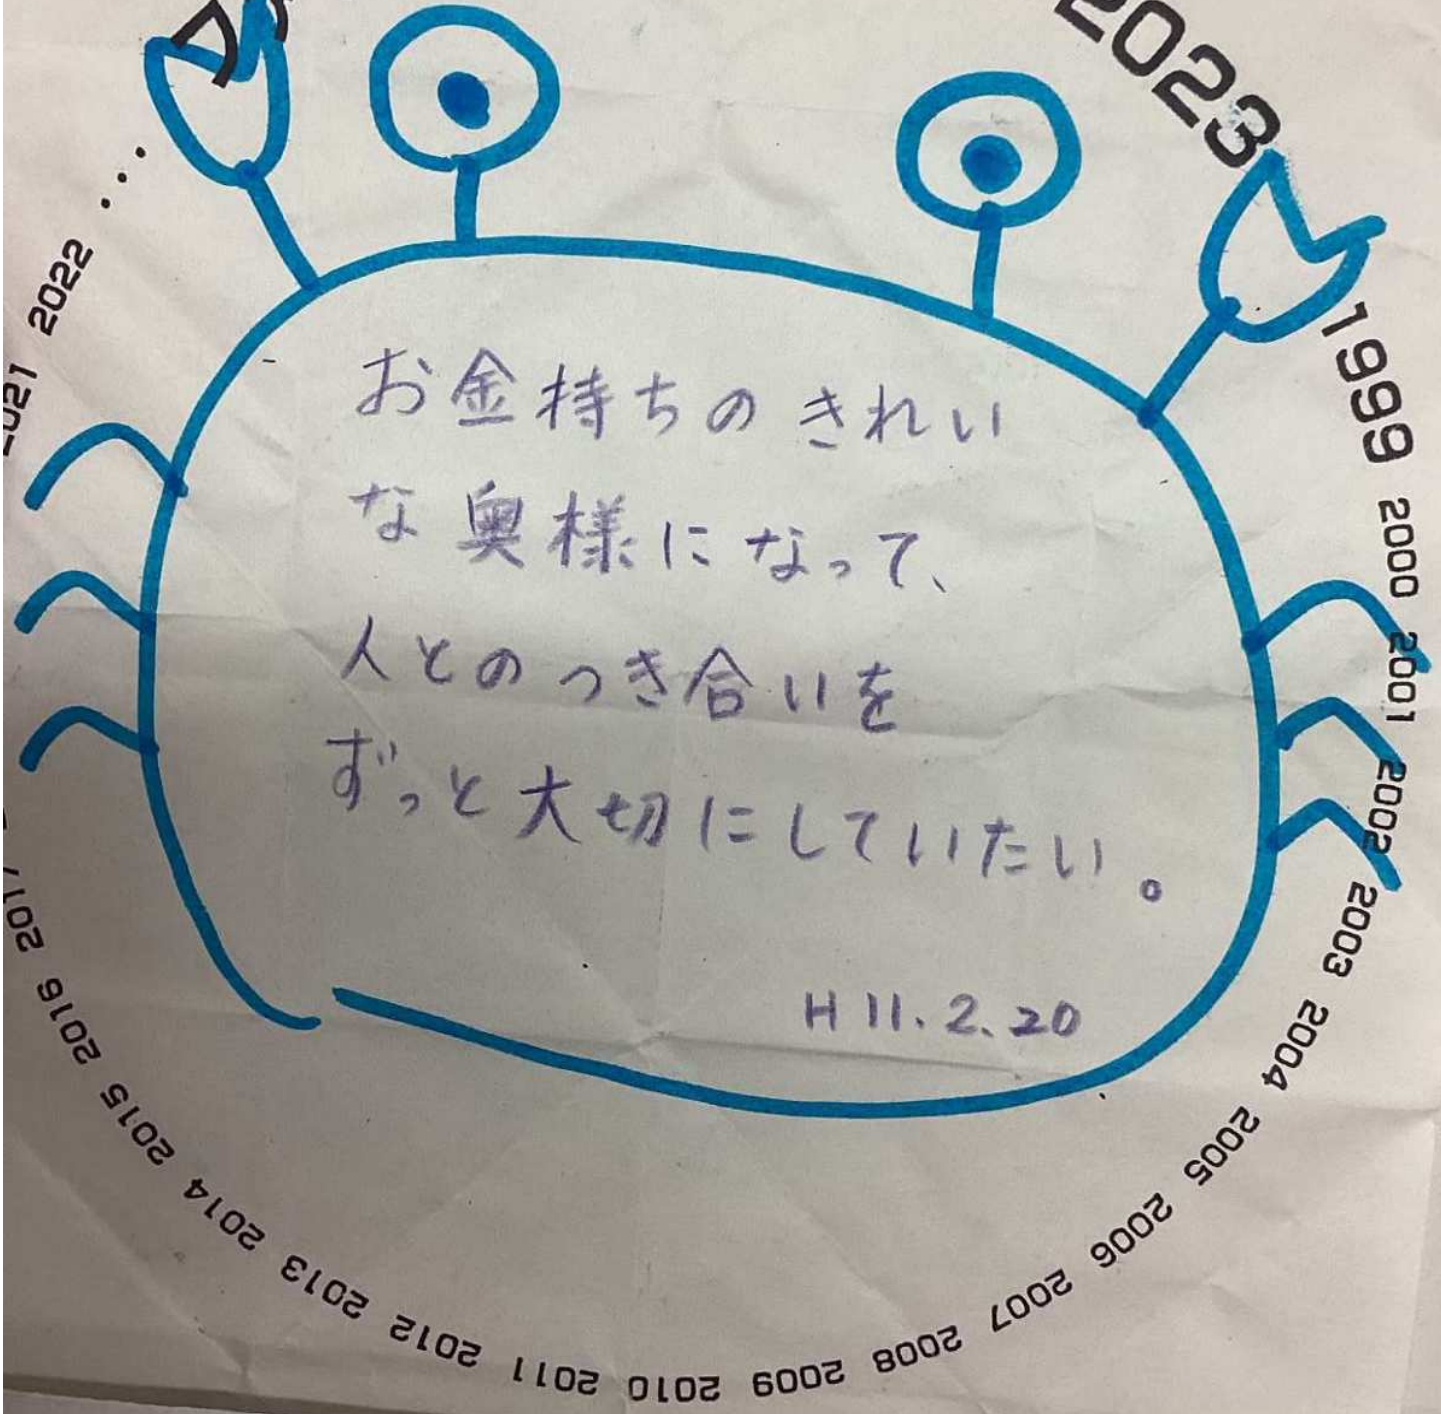 2023
1999
2000
2001
2002
2003
2004
2005
2006
2007
2008
2009
2010
2011
2012
2013
2014
2015
2016
2017
2021
2022
....
お金持ちのきれい
な奥様になって、
人とのつき合いを
ずっと大切にしていたい。
H11.2.20